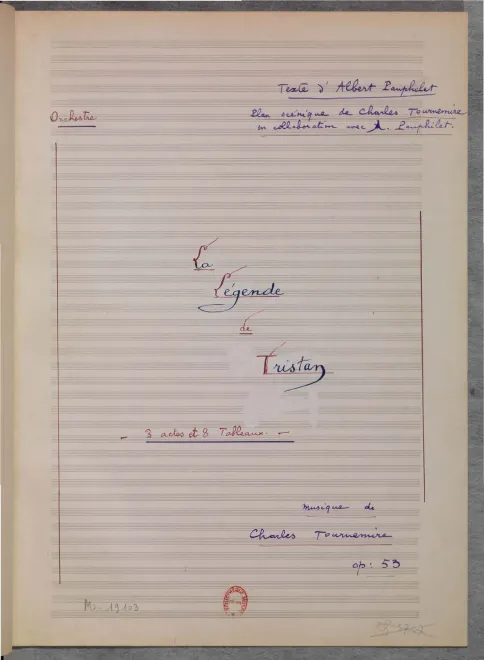 Texte d' Albert Pauphilet
Plan scénique de Charles Tournemire
en collaboration avec A. Pauphilet.
Orchestre
La
Légende
de
Tristan
- 3 actes et 8 Tableaux. -
Musique de
Charles Tournemire
op: 53
Ms. 19103